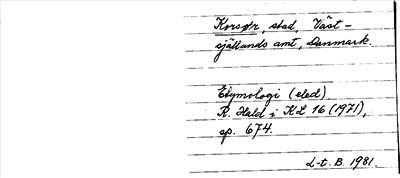 Korsør, stad, Väst-
själlands amt, Danmark.
Etymologi (eled)
K. Hald i KL 16 (1971),
sp. 674.
L-t. B. 1981.